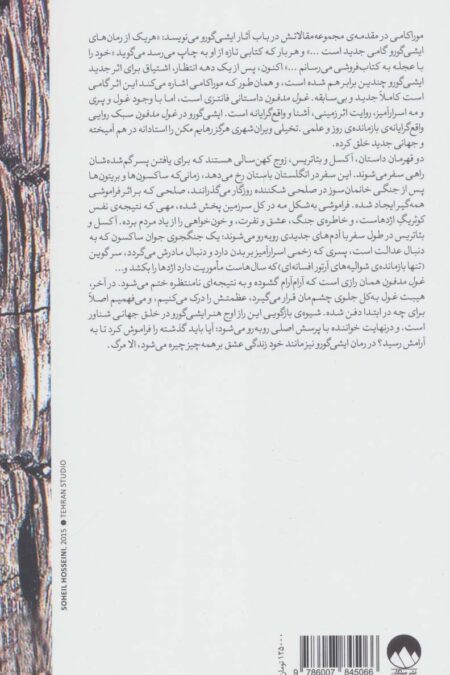 موراکامی در مقدمه‌ی مجموعه‌مقالاتش در باب آثار ایشی‌گورو می‌نویسد: «هریک از رمان‌های
ایشی‌گورو گامی جدید است ...» و هربار که کتابی تازه از او به چاپ می‌رسد می‌گوید «خود را
با عجله به کتاب‌فروشی می‌رسانم ...» اکنون، پس از یک دهه انتظار، اشتیاق برای اثر جدید
ایشی‌گورو چندین برابر هم شده است، و همان‌طور که موراکامی اشاره می‌کند این اثر گامی
است کاملاً جدید و بی‌سابقه. غول مدفون داستانی فانتزی است، اما با وجود غول و پری و
مه اسرارآمیز، روایت اثر زمینی، آشنا و واقع‌گرایانه است. ایشی‌گورو در غول مدفون سبک روایی
واقع‌گرایانه‌ی بازمانده‌ی روز و علمی ـ تخیلی ویران‌شهری هرگز رهایم مکن را استادانه در هم آمیخته
و جهانی جدید خلق کرده.
دو قهرمان داستان، آکسل و بئاتریس، زوج کهن‌سالی هستند که برای یافتن پسر گم‌شده‌شان
راهی سفر می‌شوند. این سفر در انگلستان باستان رخ می‌دهد، زمانی‌که ساکسون‌ها و بریتون‌ها
پس از جنگی خانمان‌سوز در صلحی شکننده روزگار می‌گذرانند، صلحی که بر اثر فراموشی
همه‌گیر ایجاد شده. فراموشی به‌شکل مه در کل سرزمین پخش شده، مهی که نتیجه‌ی نفس
کوئریگِ اژدهاست، و خاطره‌ی جنگ، عشق و نفرت، و خون‌خواهی را از یاد مردم برده. آکسل و
بئاتریس در طول سفر با آدم‌های جدیدی روبه‌رو می‌شوند: یک جنگجوی جوان ساکسون که به
دنبال عدالت است، پسری که زخمی اسرارآمیز بر بدن دارد و دنبال مادرش می‌گردد، سر گوین
(تنها بازمانده‌ی شوالیه‌های آرتور افسانه‌ای) که سال‌هاست مأموریت دارد اژدها را بکشد و...
غول مدفون همان رازی است که آرام‌آرام گشوده و به نتیجه‌ای نامنتظره ختم می‌شود. در آخر،
هیبت غول به‌کل جلوی چشم‌مان قرار می‌گیرد، عظمتش را درک می‌کنیم، و می‌فهمیم اصلاً
برای چه در ابتدا دفن شده. شیوه‌ی بازگویی این راز اوج هنر ایشی‌گورو در خلق جهانی شناور
است، و درنهایت خواننده با پرسش اصلی روبه‌رو می‌شود: آیا باید گذشته را فراموش کرد تا به
آرامش رسید؟ در رمان ایشی‌گورو نیز مانند خود زندگی عشق بر همه‌چیز چیره می‌شود، الا مرگ.
SOHEIL HOSSEINI, 2015 ● TEHRAN STUDIO
۱۲۵۰۰۰ تومان
9 786007 845066
نشر میلکان